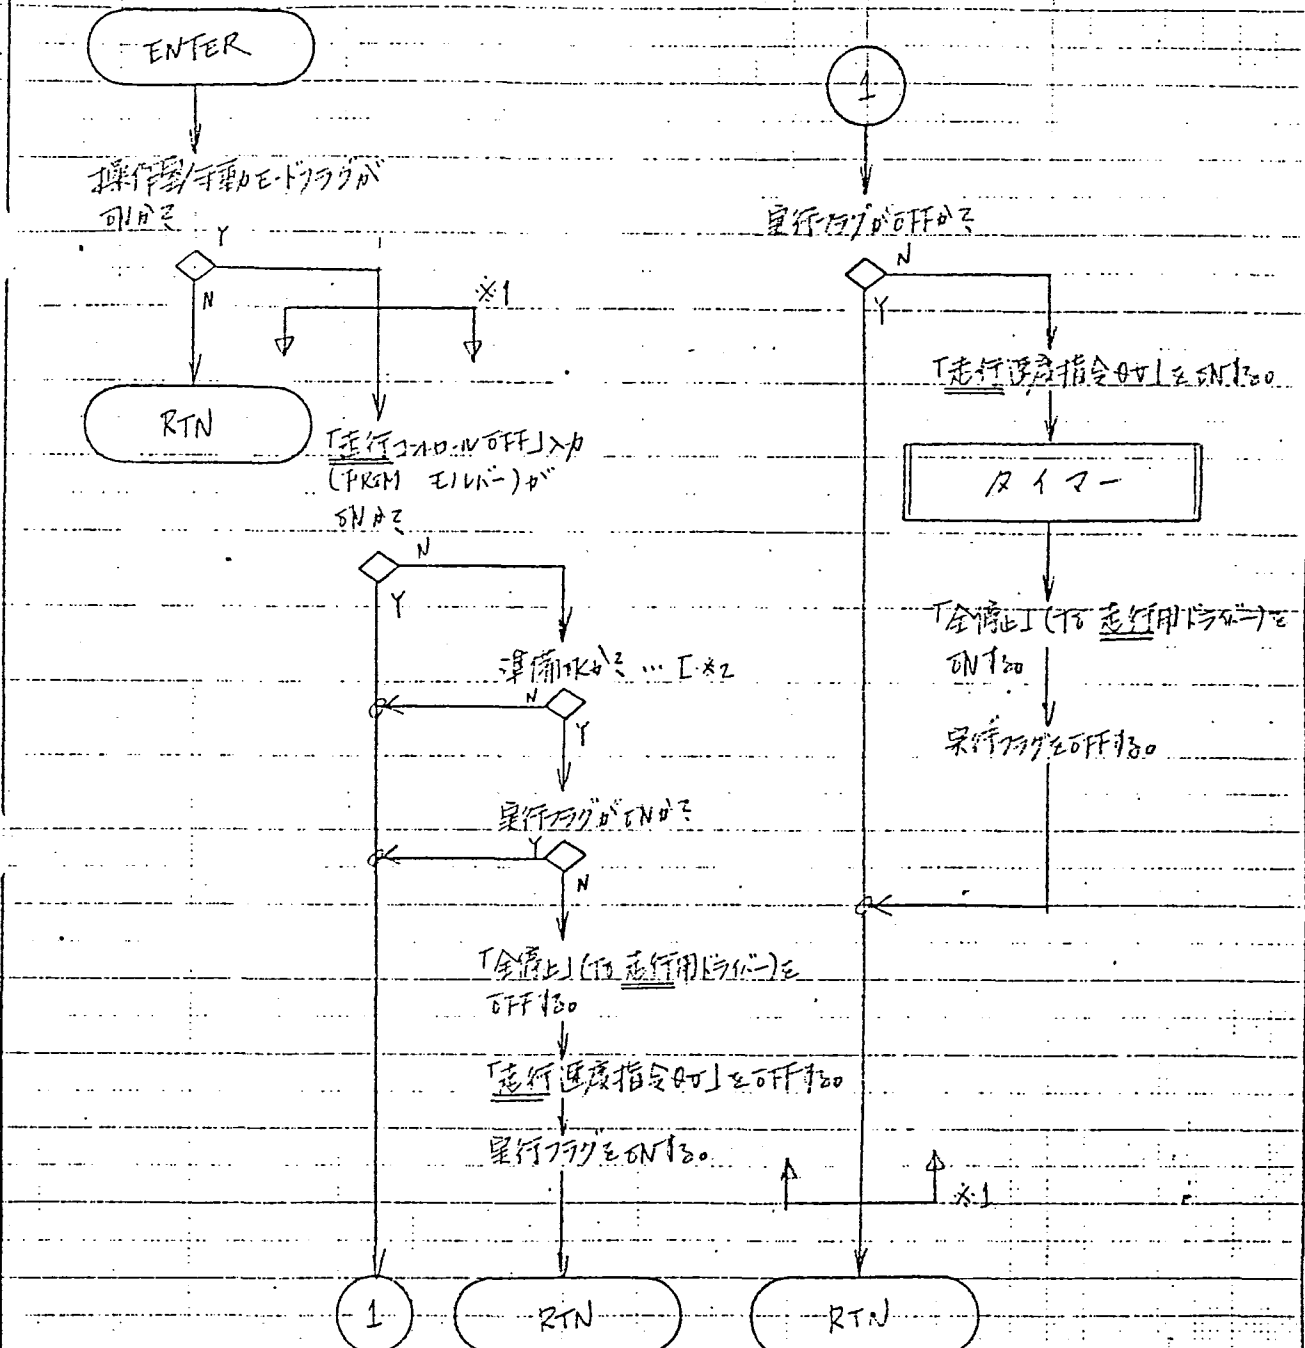 ENTER
操作盤/手動モードフラグが
ONかネ
Y
N
※1
RTN
「走行コントロールOFF」入力
(FROM モルバー)が
ONかネ
N
Y
準備OKかネ … [※2
N
Y
実行フラグがONかネ
Y
N
「全停止」(TO 走行用ドライバー)を
OFFする。
「走行速度指令0V」をOFFする。
実行フラグをONする。
1
RTN
1
実行フラグがOFFかネ
N
Y
「走行速度指令0V」をONする。
タイマー
「全停止」(TO 走行用ドライバー)を
ONする。
実行フラグをOFFする。
※1
RTN